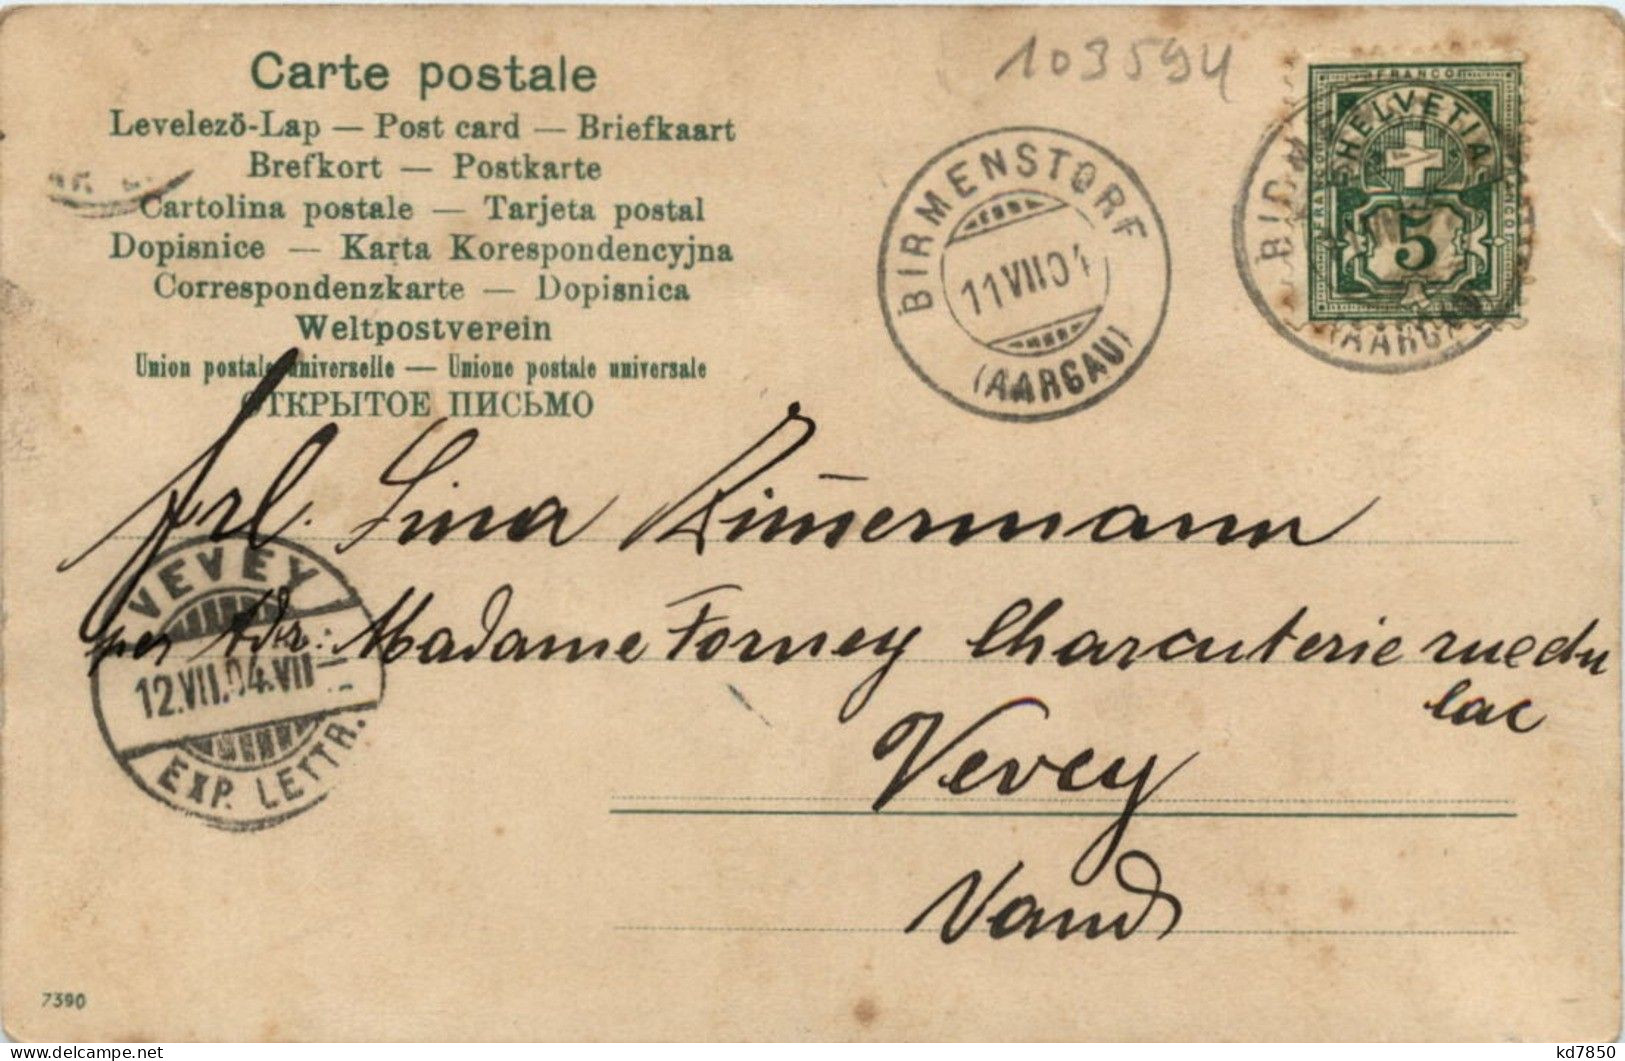 103594
Carte postale
Levelező-Lap — Post card — Briefkaart
Brefkort — Postkarte
Cartolina postale — Tarjeta postal
Dopisnice — Karta Korespondencyjna
Correspondenzkarte — Dopisnica
Weltpostverein
Union postale universelle — Unione postale universale
ОТКРЫТОЕ ПИСЬМО
BIRMENSTORF
11 VII 04
(AARGAU)
FRANCO
HELVETIA
5
(AARGAU)
Frl. Lina Zimmermann
per Adr: Madame Forney Charcuterie rue du
lac
Vevey
Vaud
VEVEY
12.VII.04.VII
EXP. LETTR.
7390
delcampe.net
kd7850